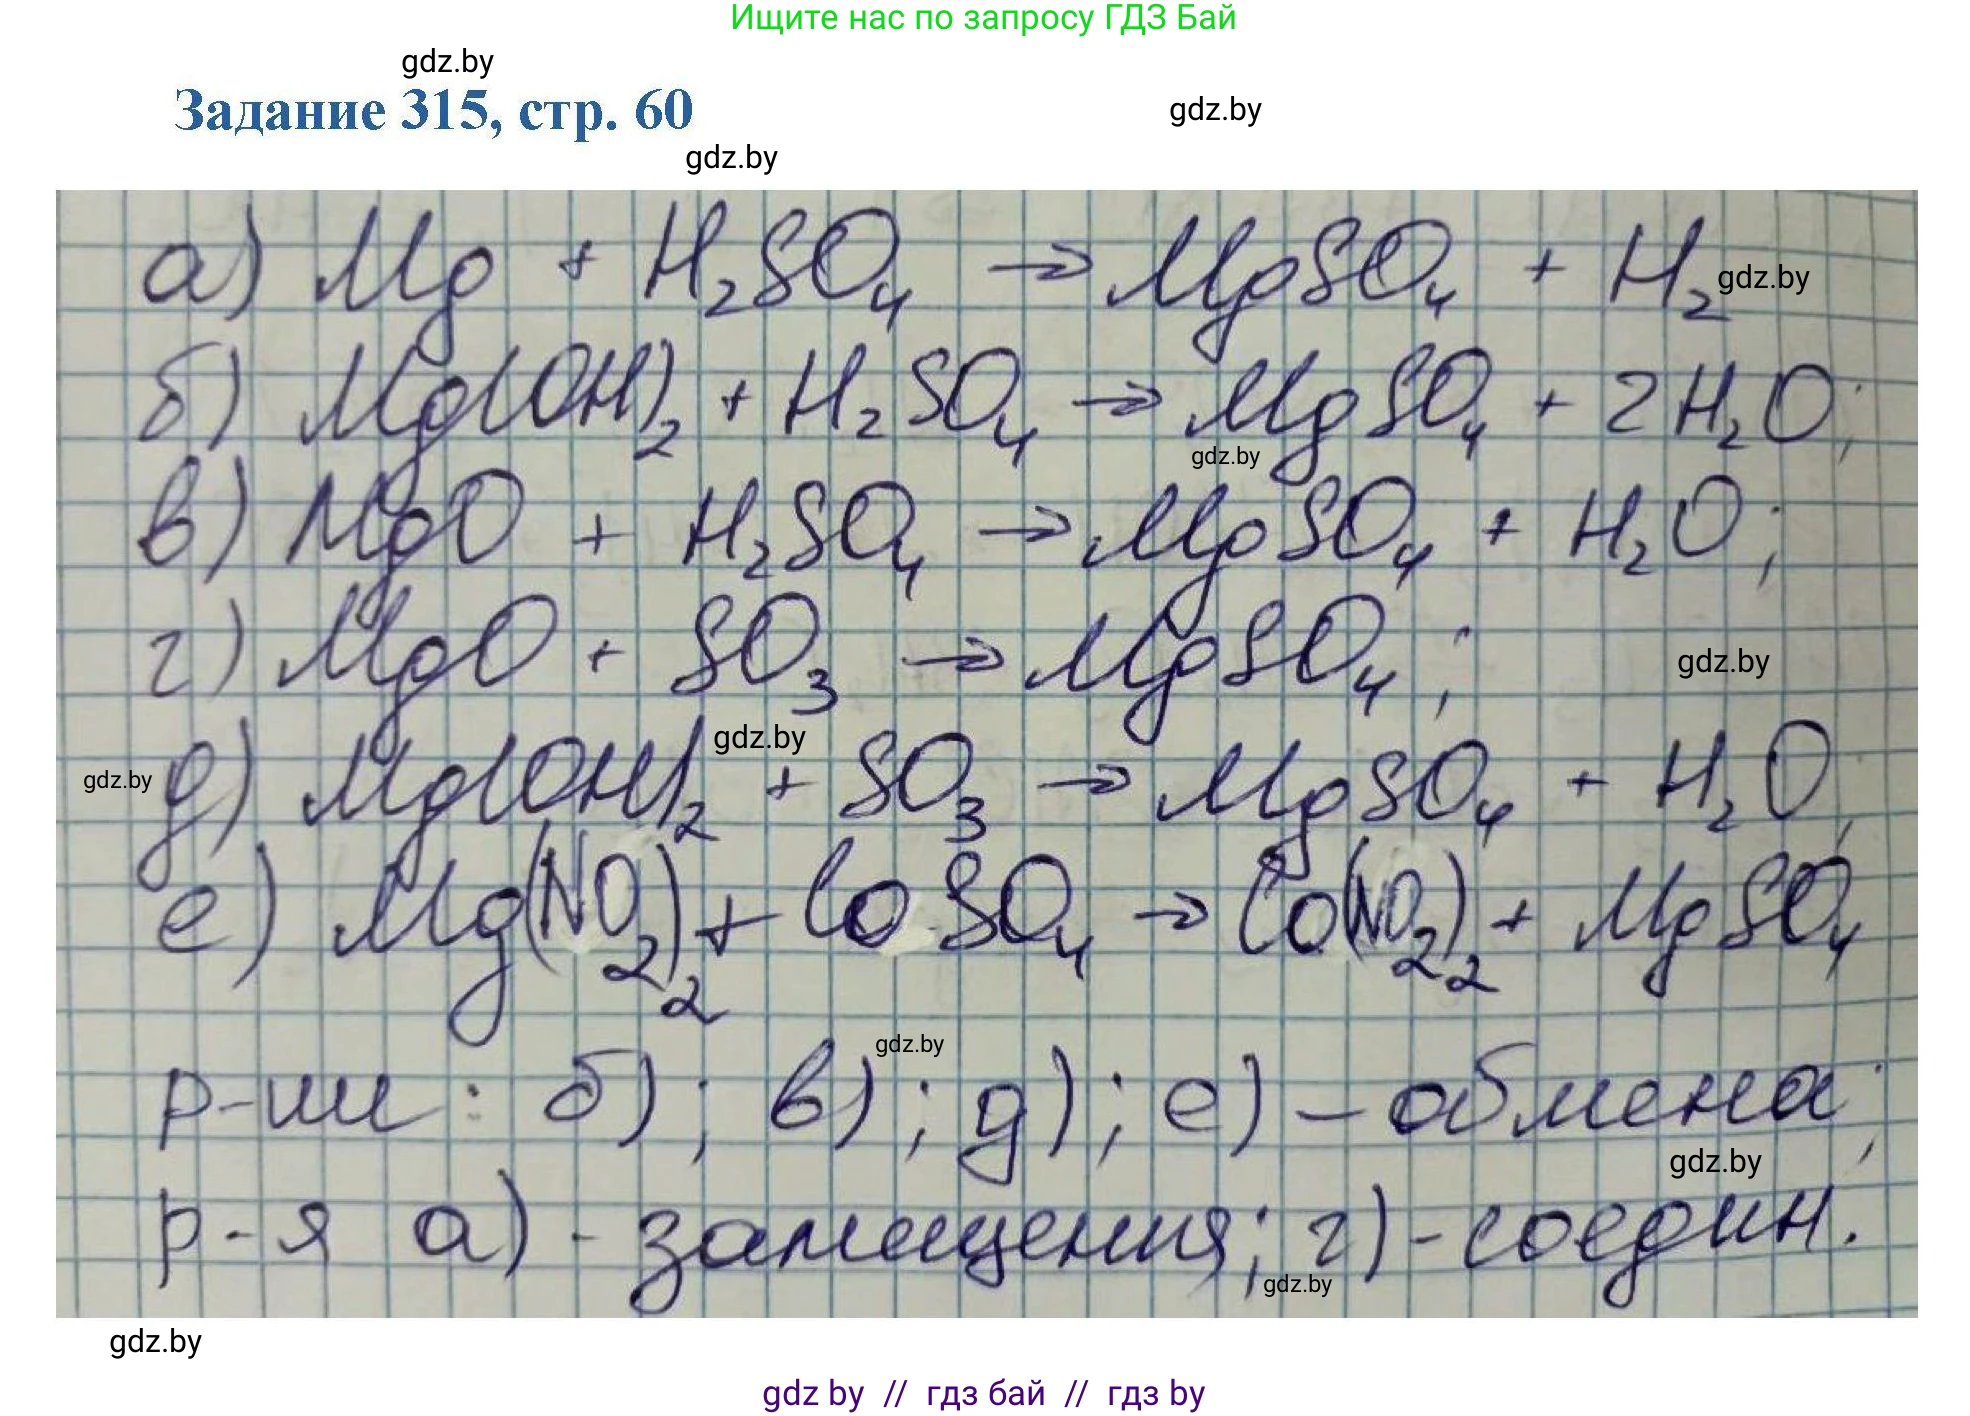 Ищите нас по запросу ГДЗ Бай
gdz.by
Задание 315, стр. 60
gdz.by
gdz.by
а) Mg + H₂SO₄ → MgSO₄ + H₂
gdz.by
б) Mg(OH)₂ + H₂SO₄ → MgSO₄ + 2H₂O;
gdz.by
в) MgO + H₂SO₄ → MgSO₄ + H₂O;
г) MgO + SO₃ → MgSO₄;
gdz.by
gdz.by
д) Mg(OH)₂ + SO₃ → MgSO₄ + H₂O;
gdz.by
е) Mg(NO₂)₂ + CoSO₄ → Co(NO₂)₂ + MgSO₄
gdz.by
р-ии: б); в); д); е) – обмена;
gdz.by
р-я а) - замещения; г) - соедин.
gdz.by
gdz.by
gdz by // гдз бай // гдз by